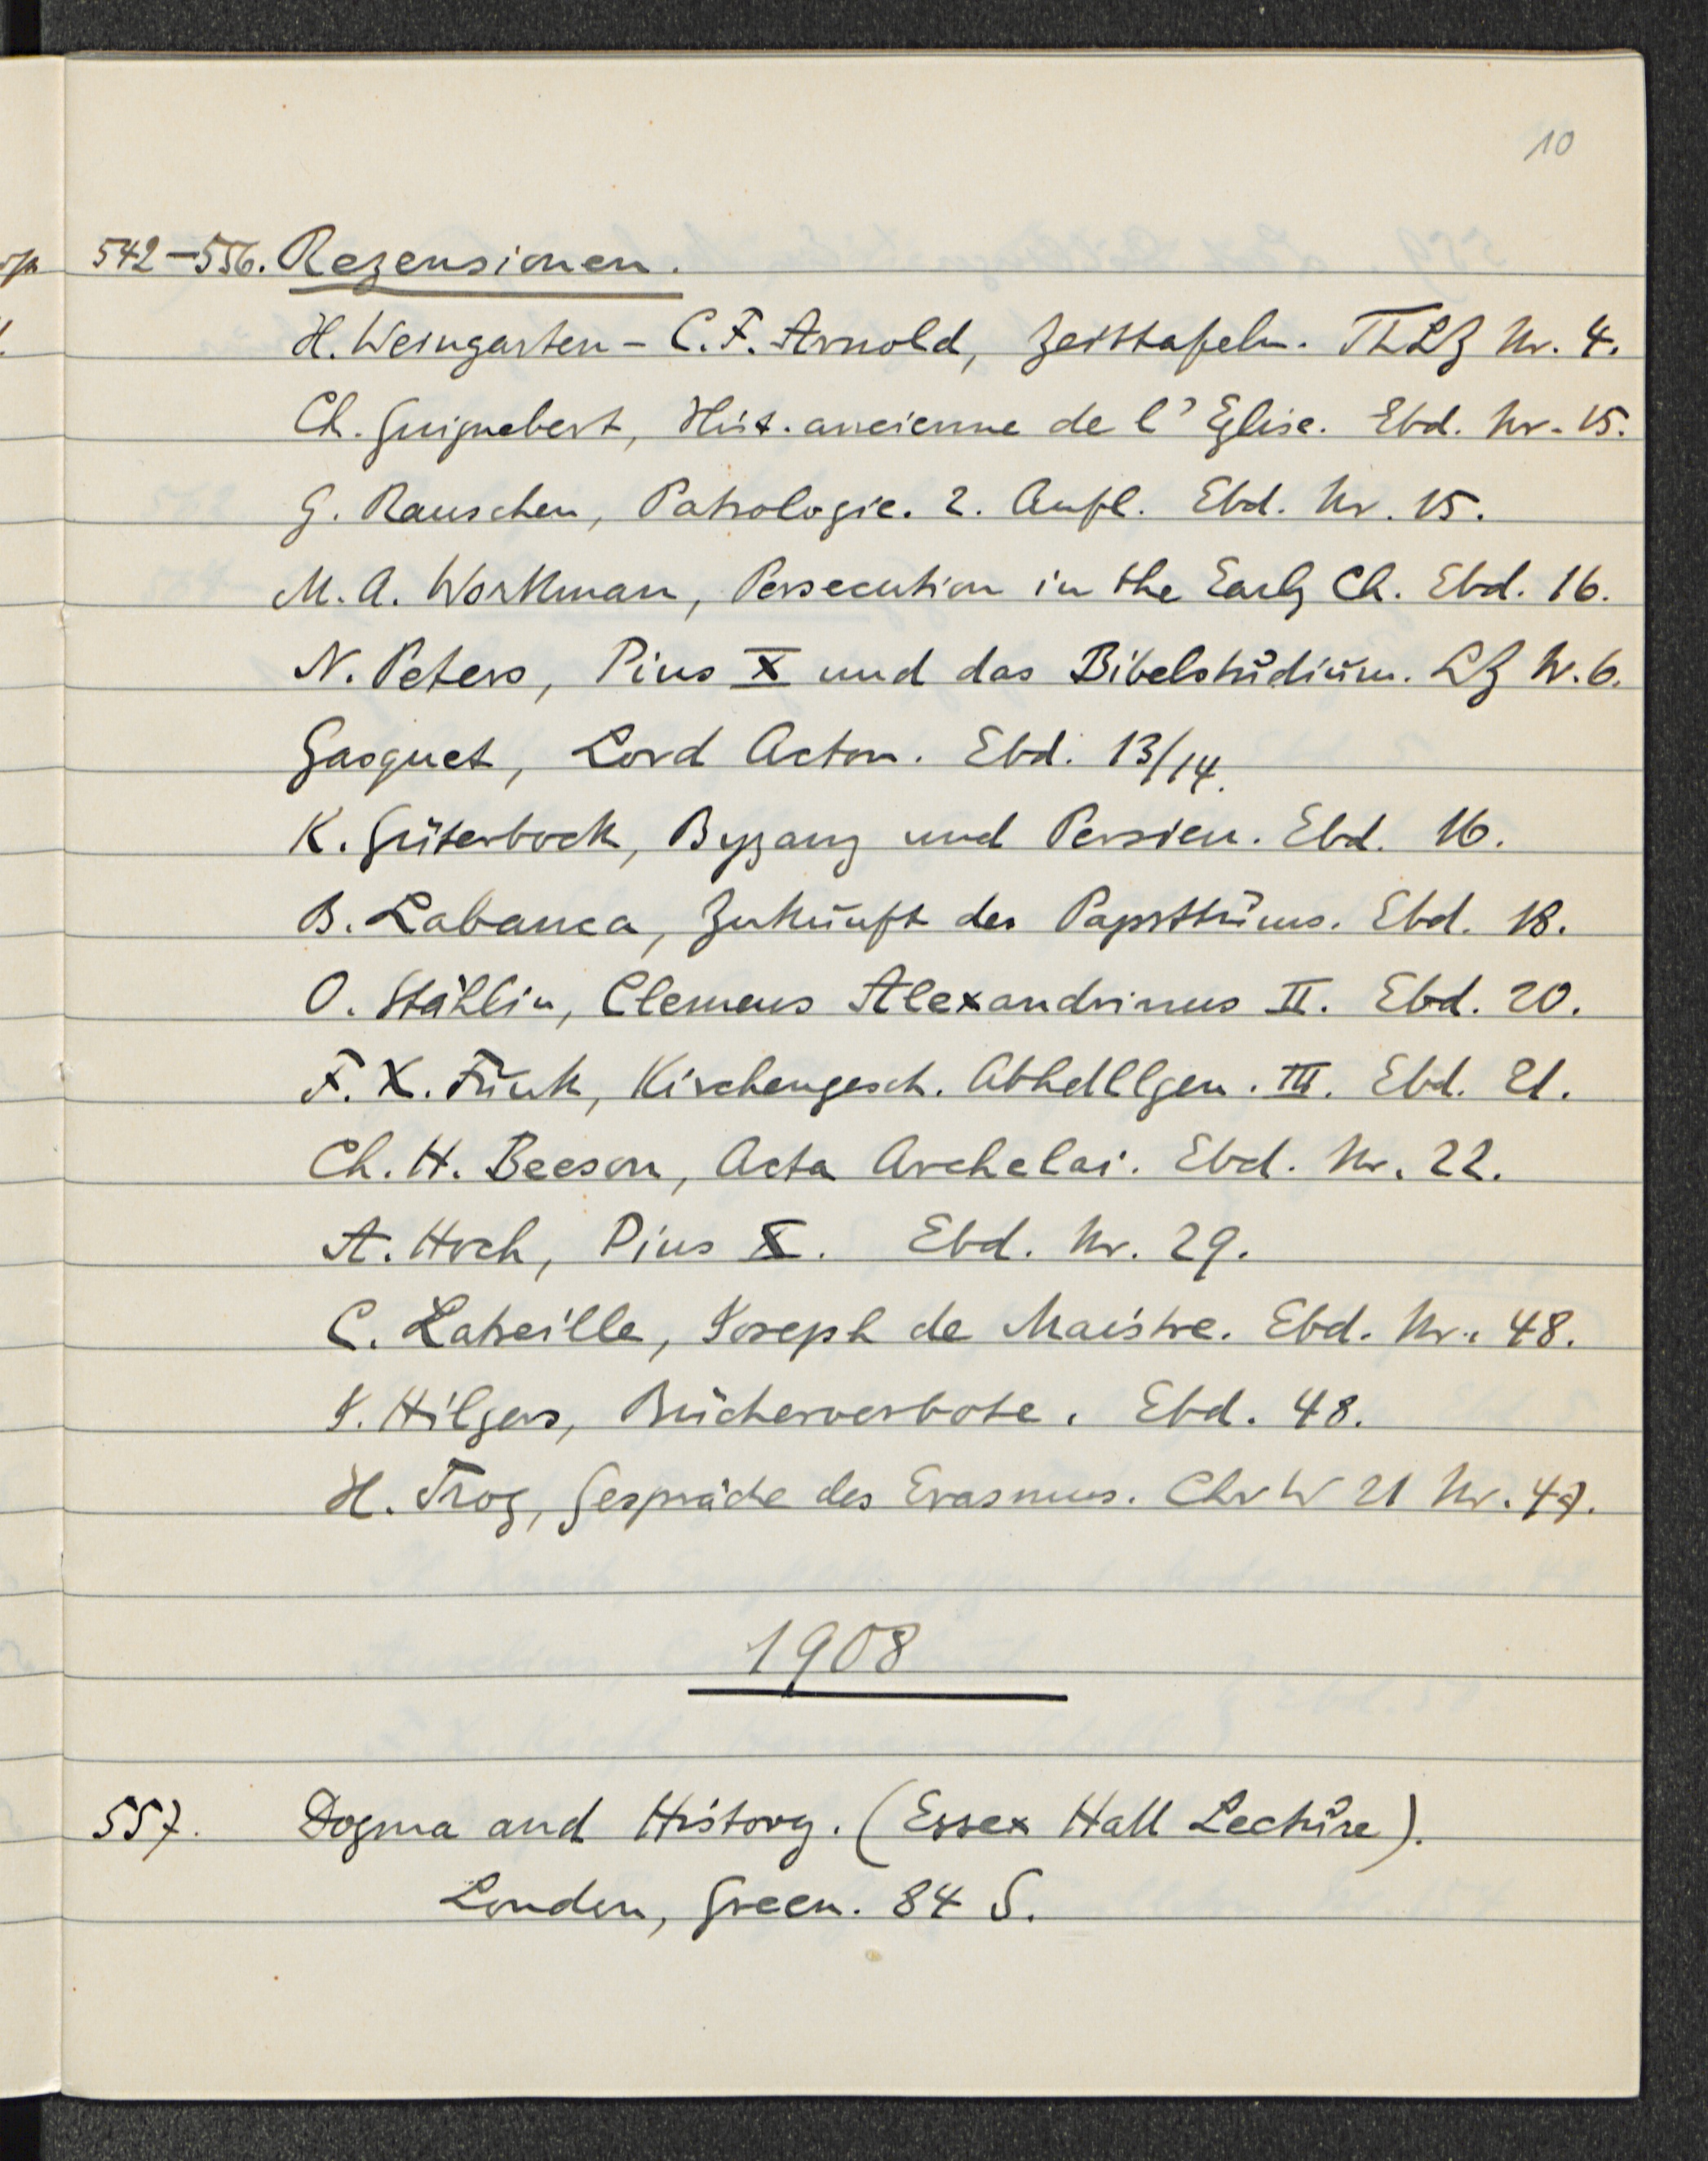 10
542-556. Rezensionen.
H. Weingarten - C. F. Arnold, Zeittafeln. ThLZ Nr. 4.
Ch. Guignebert, Hist. ancienne de l'Eglise. Ebd. Nr. 15.
G. Rauschen, Patrologie. 2. Aufl. Ebd. Nr. 15.
M. A. Workman, Persecution in the Early Ch. Ebd. 16.
N. Peters, Pius X und das Bibelstudium. LZ Nr. 6.
Gasquet, Lord Acton. Ebd. 13/14.
K. Güterbock, Byzanz und Persien. Ebd. 16.
B. Labanca, Zukunft des Papsttums. Ebd. 18.
O. Stählin, Clemens Alexandrinus II. Ebd. 20.
F. X. Funk, Kirchengesch. Abhdllgen. III. Ebd. 21.
Ch. H. Beeson, Acta Archelai. Ebd. Nr. 22.
A. Hoch, Pius X. Ebd. Nr. 29.
C. Latreille, Joseph de Maistre. Ebd. Nr. 48.
J. Hilgers, Bücherverbote. Ebd. 48.
H. Trog, Gespräche des Erasmus. ChrW 21 Nr. 47.
1908
557. Dogma and History. (Essex Hall Lecture).
London, Green. 84 S.